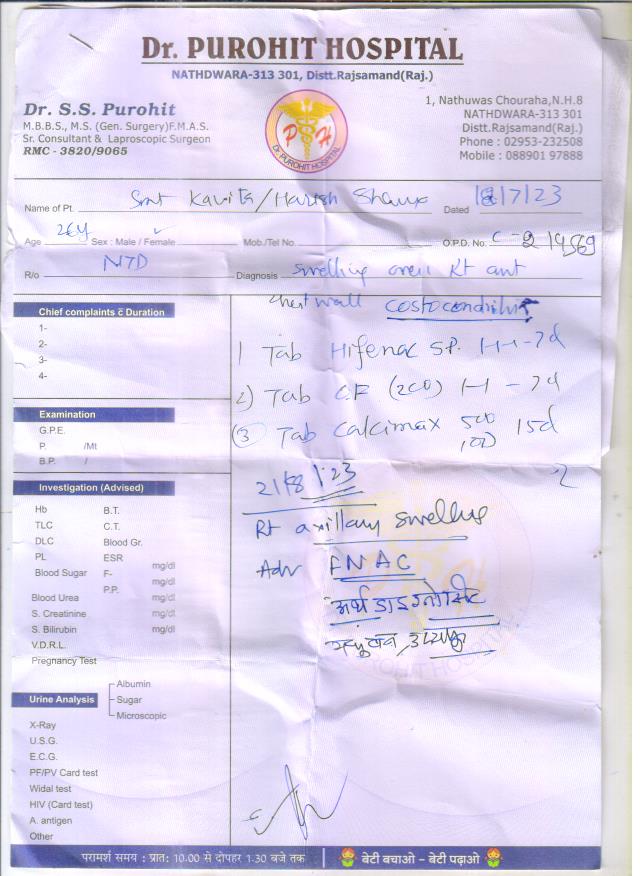 Dr. PUROHIT HOSPITAL
NATHDWARA-313 301, Distt.Rajsamand(Raj.)
Dr. S.S. Purohit
M.B.B.S., M.S. (Gen. Surgery)F.M.A.S.
Sr. Consultant & Laproscopic Surgeon
RMC - 3820/9065
P H
Dr. PUROHIT HOSPITAL
1, Nathuwas Chouraha,N.H.8
NATHDWARA-313 301
Distt.Rajsamand(Raj.)
Phone : 02953-232508
Mobile : 088901 97888
Name of Pt. Smt Kavita/Harish Dated 18/7/23
Age 26y Sex : Male / Female ✓ Mob./Tel No. O.P.D. No. C-2
R/o NTD Diagnosis swelling over Rt ant
chest wall costocondritis
Chief complaints c̄ Duration
1-
2-
3-
4-
1 Tab Hifenac S.P. 1-1-7d
2) Tab CF (200) 1-1-7d
3 Tab Calcimax 500 15d
Examination
G.P.E.
P. /Mt
B.P. /
Investigation (Advised)
Hb B.T.
TLC C.T.
DLC Blood Gr.
PL ESR
Blood Sugar F- mg/dl
P.P. mg/dl
Blood Urea mg/dl
S. Creatinine mg/dl
S. Bilirubin mg/dl
V.D.R.L.
Pregnancy Test
21/8/23
Rt axillary swelling
Adv FNAC
अर्थ डाइग्नोसिट
उदयपुर
Urine Analysis
Albumin
Sugar
Microscopic
X-Ray
U.S.G.
E.C.G.
PF/PV Card test
Widal test
HIV (Card test)
A. antigen
Other
परामर्श समय : प्रात: 10.00 से दोपहर 1.30 बजे तक
बेटी बचाओ - बेटी पढ़ाओ